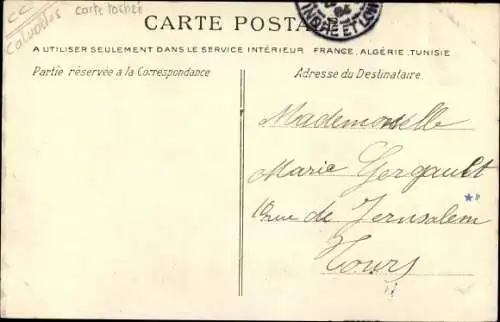 CC
Calvados
carte tachée
CARTE POSTA
04
INDRE ET LOIR
A UTILISER SEULEMENT DANS LE SERVICE INTÉRIEUR FRANCE, ALGÉRIE, TUNISIE
Partie réservée a la Correspondance
Adresse du Destinataire.
Mademoiselle
Marie Gergault
rue de Jerusalem
Tours